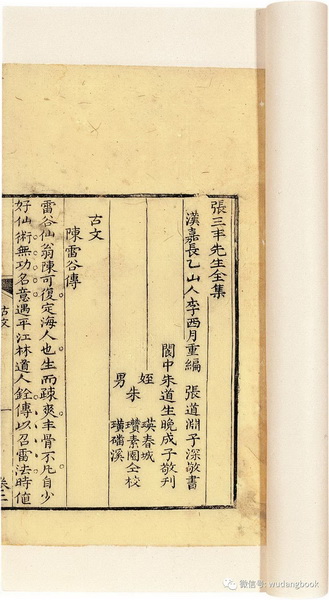 張三丰先生全集
漢嘉長乙山人李西月重編 張道淵子深敬書
閬中朱道生晚成子敬刊
姪 瑛春城
朱 瓚素園仝校
男 璜磻溪
古文
陳雷谷傳
雷谷仙翁陳可復定海人也生而疎爽丰骨不凡自少
好仙術無功名意遇平江林道人銓傳以召雷法時値
古文 一 卷二
微信号: wudangbook